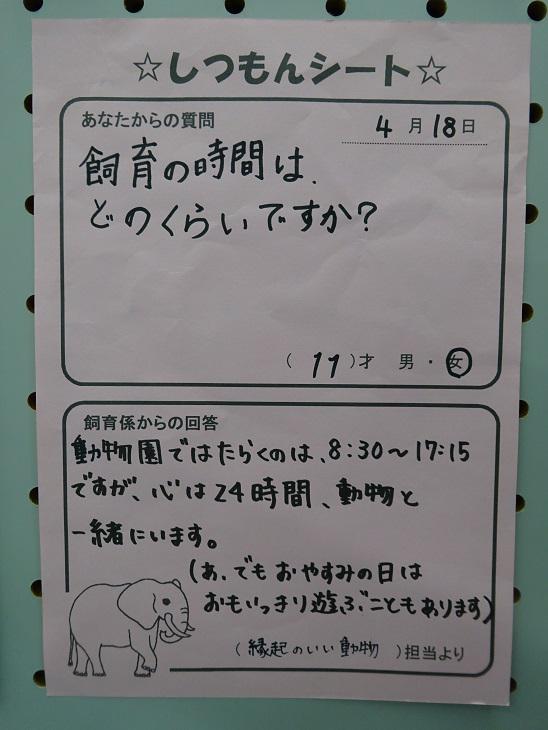 ☆しつもんシート☆
あなたからの質問
4月18日
飼育の時間は、
どのくらいですか？
（11）才 男・女
飼育係からの回答
動物園ではたらくのは、8:30～17:15
ですが、心は24時間、動物と
一緒にいます。
（あ、でもおやすみの日は
おもいっきり遊ぶこともあります）
（縁起のいい動物）担当より